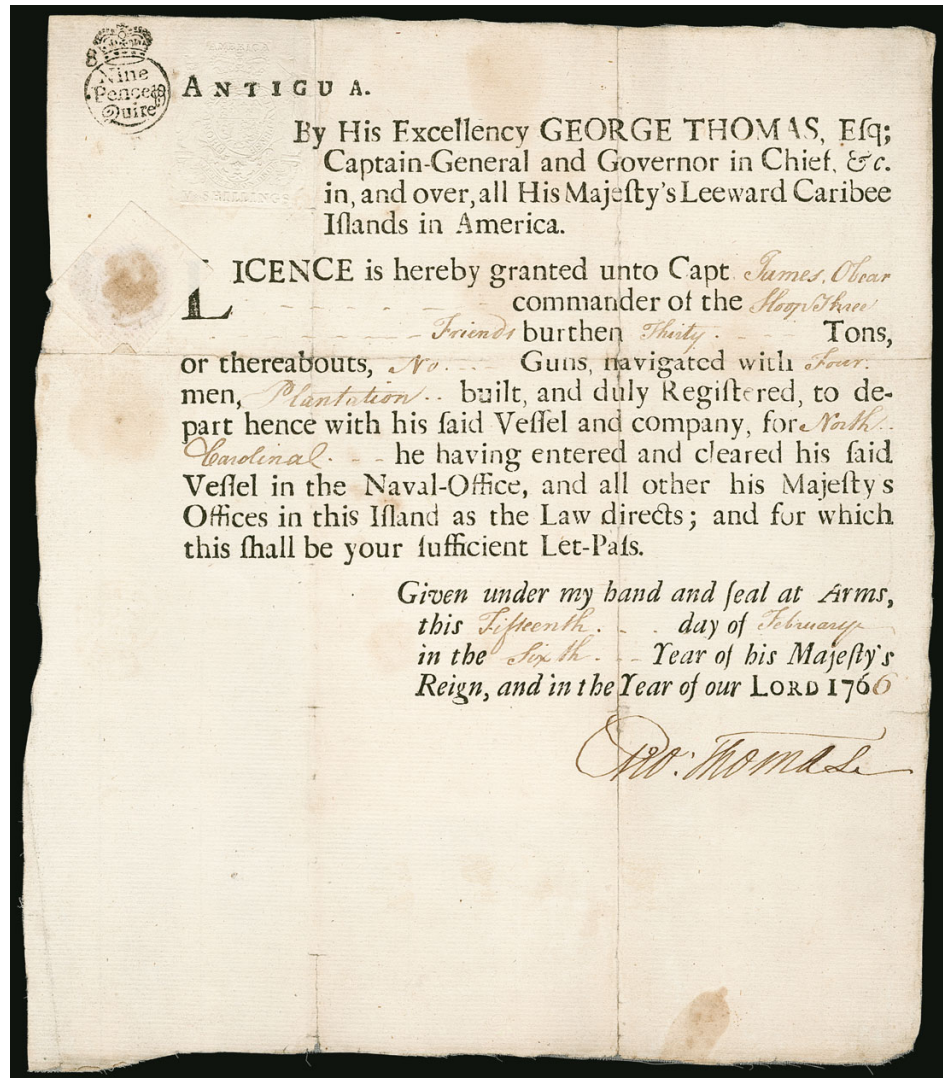 8
Nine
Pence ⅌
Quire
AMERICA
V. SHILLINGS
ANTIGUA.
By His Excellency GEORGE THOMAS, Eſq;
Captain-General and Governor in Chief, &c.
in, and over, all His Majeſty's Leeward Caribee
Iſlands in America.
LICENCE is hereby granted unto Capt. James. Obear
commander of the Sloop Three
Friends burthen Thirty. Tons,
or thereabouts, No. Guns, navigated with Four.
men, Plantation.. built, and duly Regiſtered, to de-
part hence with his ſaid Veſſel and company, for North..
Cardinal. - - he having entered and cleared his ſaid
Veſſel in the Naval-Office, and all other his Majeſty s
Offices in this Iſland as the Law directs; and for which
this ſhall be your ſufficient Let-Paſs.
Given under my hand and ſeal at Arms,
this Fifteenth. day of February
in the Sixth. Year of his Majeſty's
Reign, and in the Year of our LORD 1766
Geo: Thomas